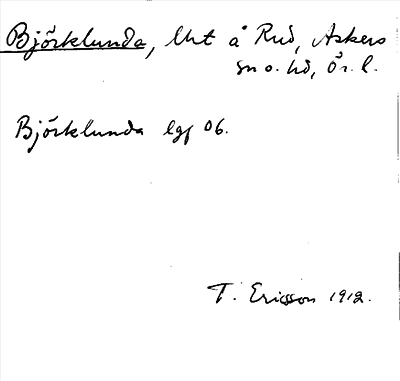 Björklunda, lht å Rud, Askers
sn o. hd, Ör. l.
Björklunda lgf 06.
T. Ericsson 1912.